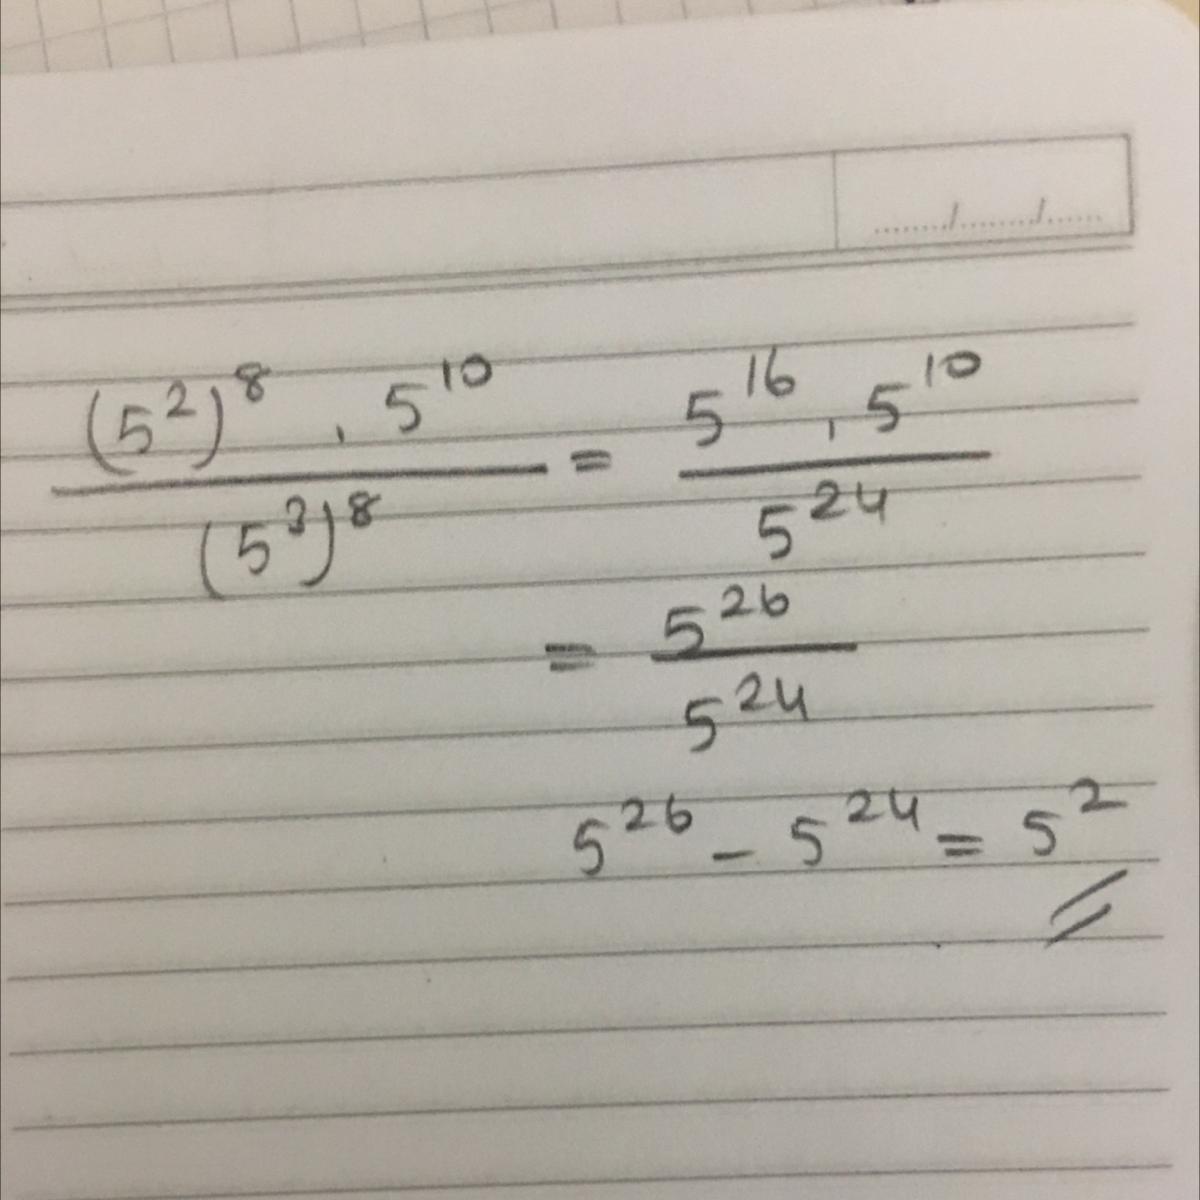 (5²)⁸ . 5¹⁰ / (5³)⁸ = 5¹⁶ . 5¹⁰ / 5²⁴
= 5²⁶ / 5²⁴
5²⁶ - 5²⁴ = 5²